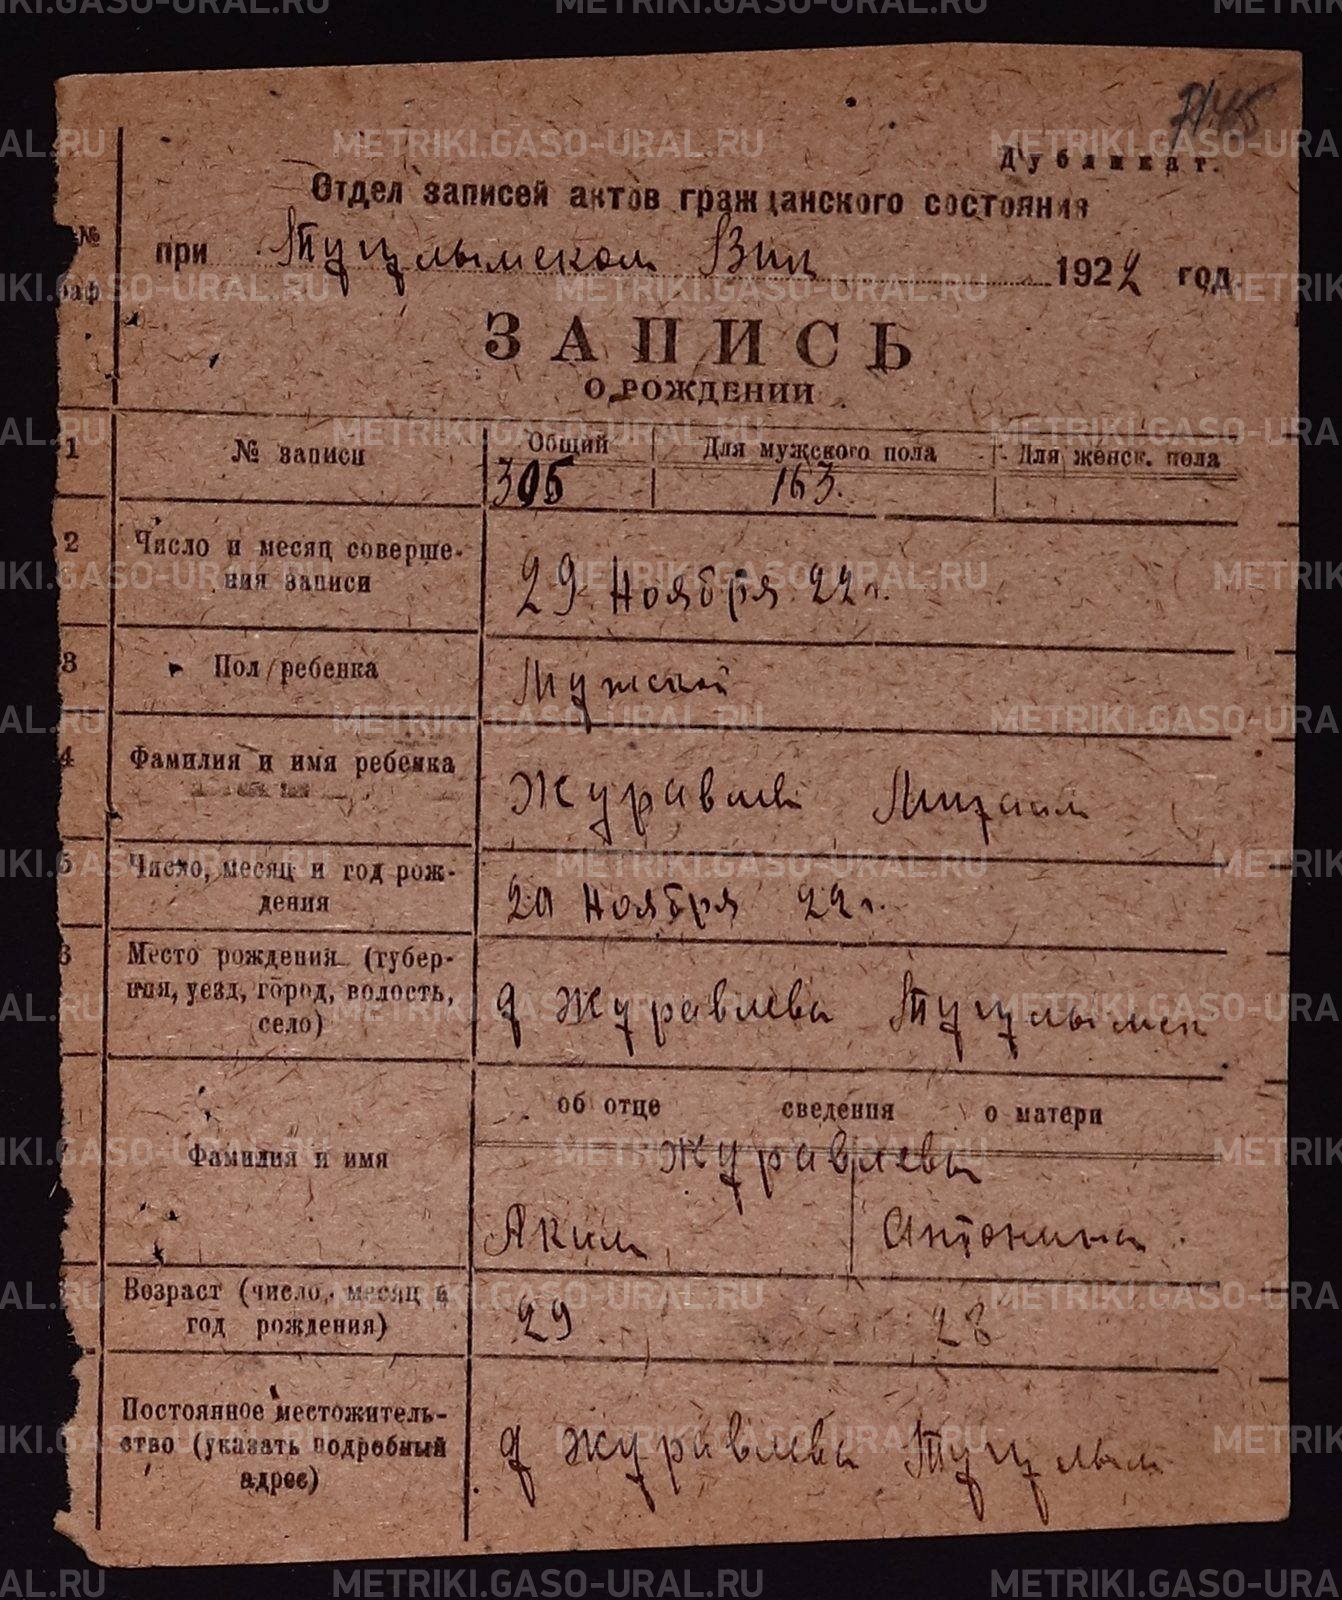 Дубликат.
Отдел записей актов гражданского состояния
при Тугулымском Вик 1922 год.
ЗАПИСЬ
О РОЖДЕНИИ
№
раф
1 № записи Общий Для мужского пола Для женск. пола
305 163.
2 Число и месяц соверше-
ния записи
29 Ноября 22 г.
3 Пол ребенка Мужской
4 Фамилия и имя ребенка Журавлев Михаил
5 Число, месяц и год рож-
дения
20 Ноября 22 г.
6 Место рождения (губер-
ния, уезд, город, волость,
село)
д Журавлева Тугулымск
об отце сведения о матери
Фамилия и имя Журавлевы
Аким Антонина
Возраст (число, месяц и
год рождения)
29 28
Постоянное местожитель-
ство (указать подробный
адрес)
д Журавлева Тугулым
METRIKI.GASO-URAL.RU